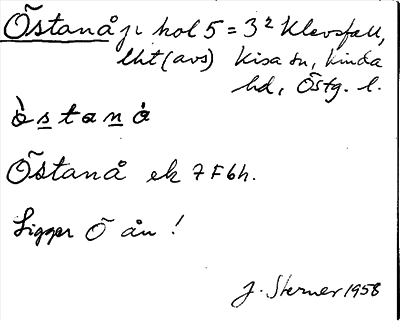 Östanå ji hol 5 = 3² Klevsfall,
lht (avs) Kisa sn, Kinda
hd, Östg. l.
ö̀ s t a n å̀
Östanå ek 7 F 6h.
Ligger Ö ån !
J. Sterner 1958